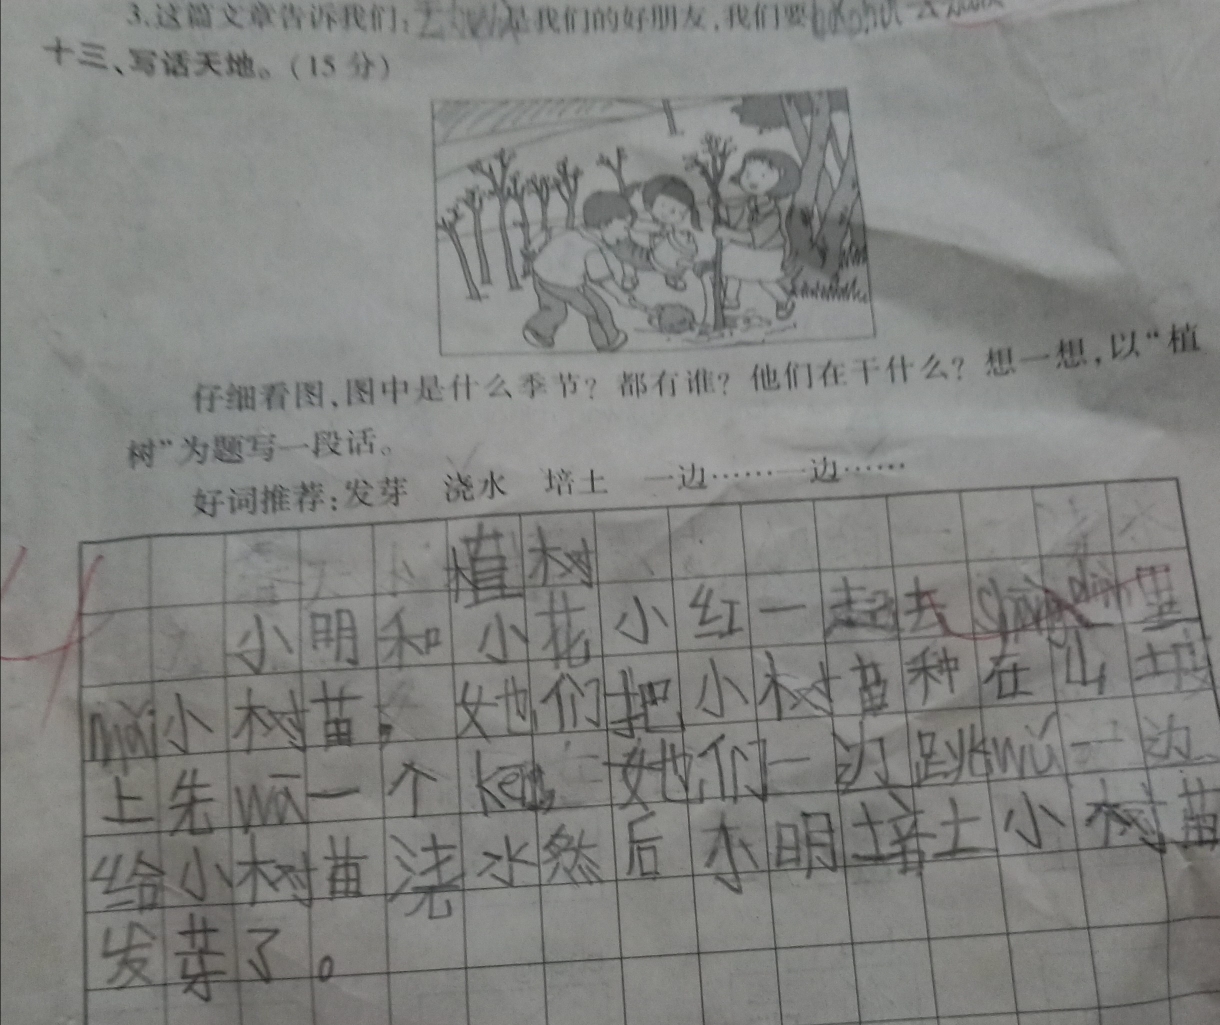 3.这篇文章告诉我们:是我们的好朋友,我们要
十三、写话天地。(15分)
仔细看图,图中是什么季节?都有谁?他们在干什么?想一想,以“植
树”为题写一段话。
好词推荐:发芽 浇水 培土 一边……一边……
植树
小明和小花小红一起去shāng diàn里
mǎi小树苗。她们把小树苗种在山坡
上先wā一个keng,她们一边跳wǔ一边
给小树苗浇水然后小明培土小树苗
发芽了。